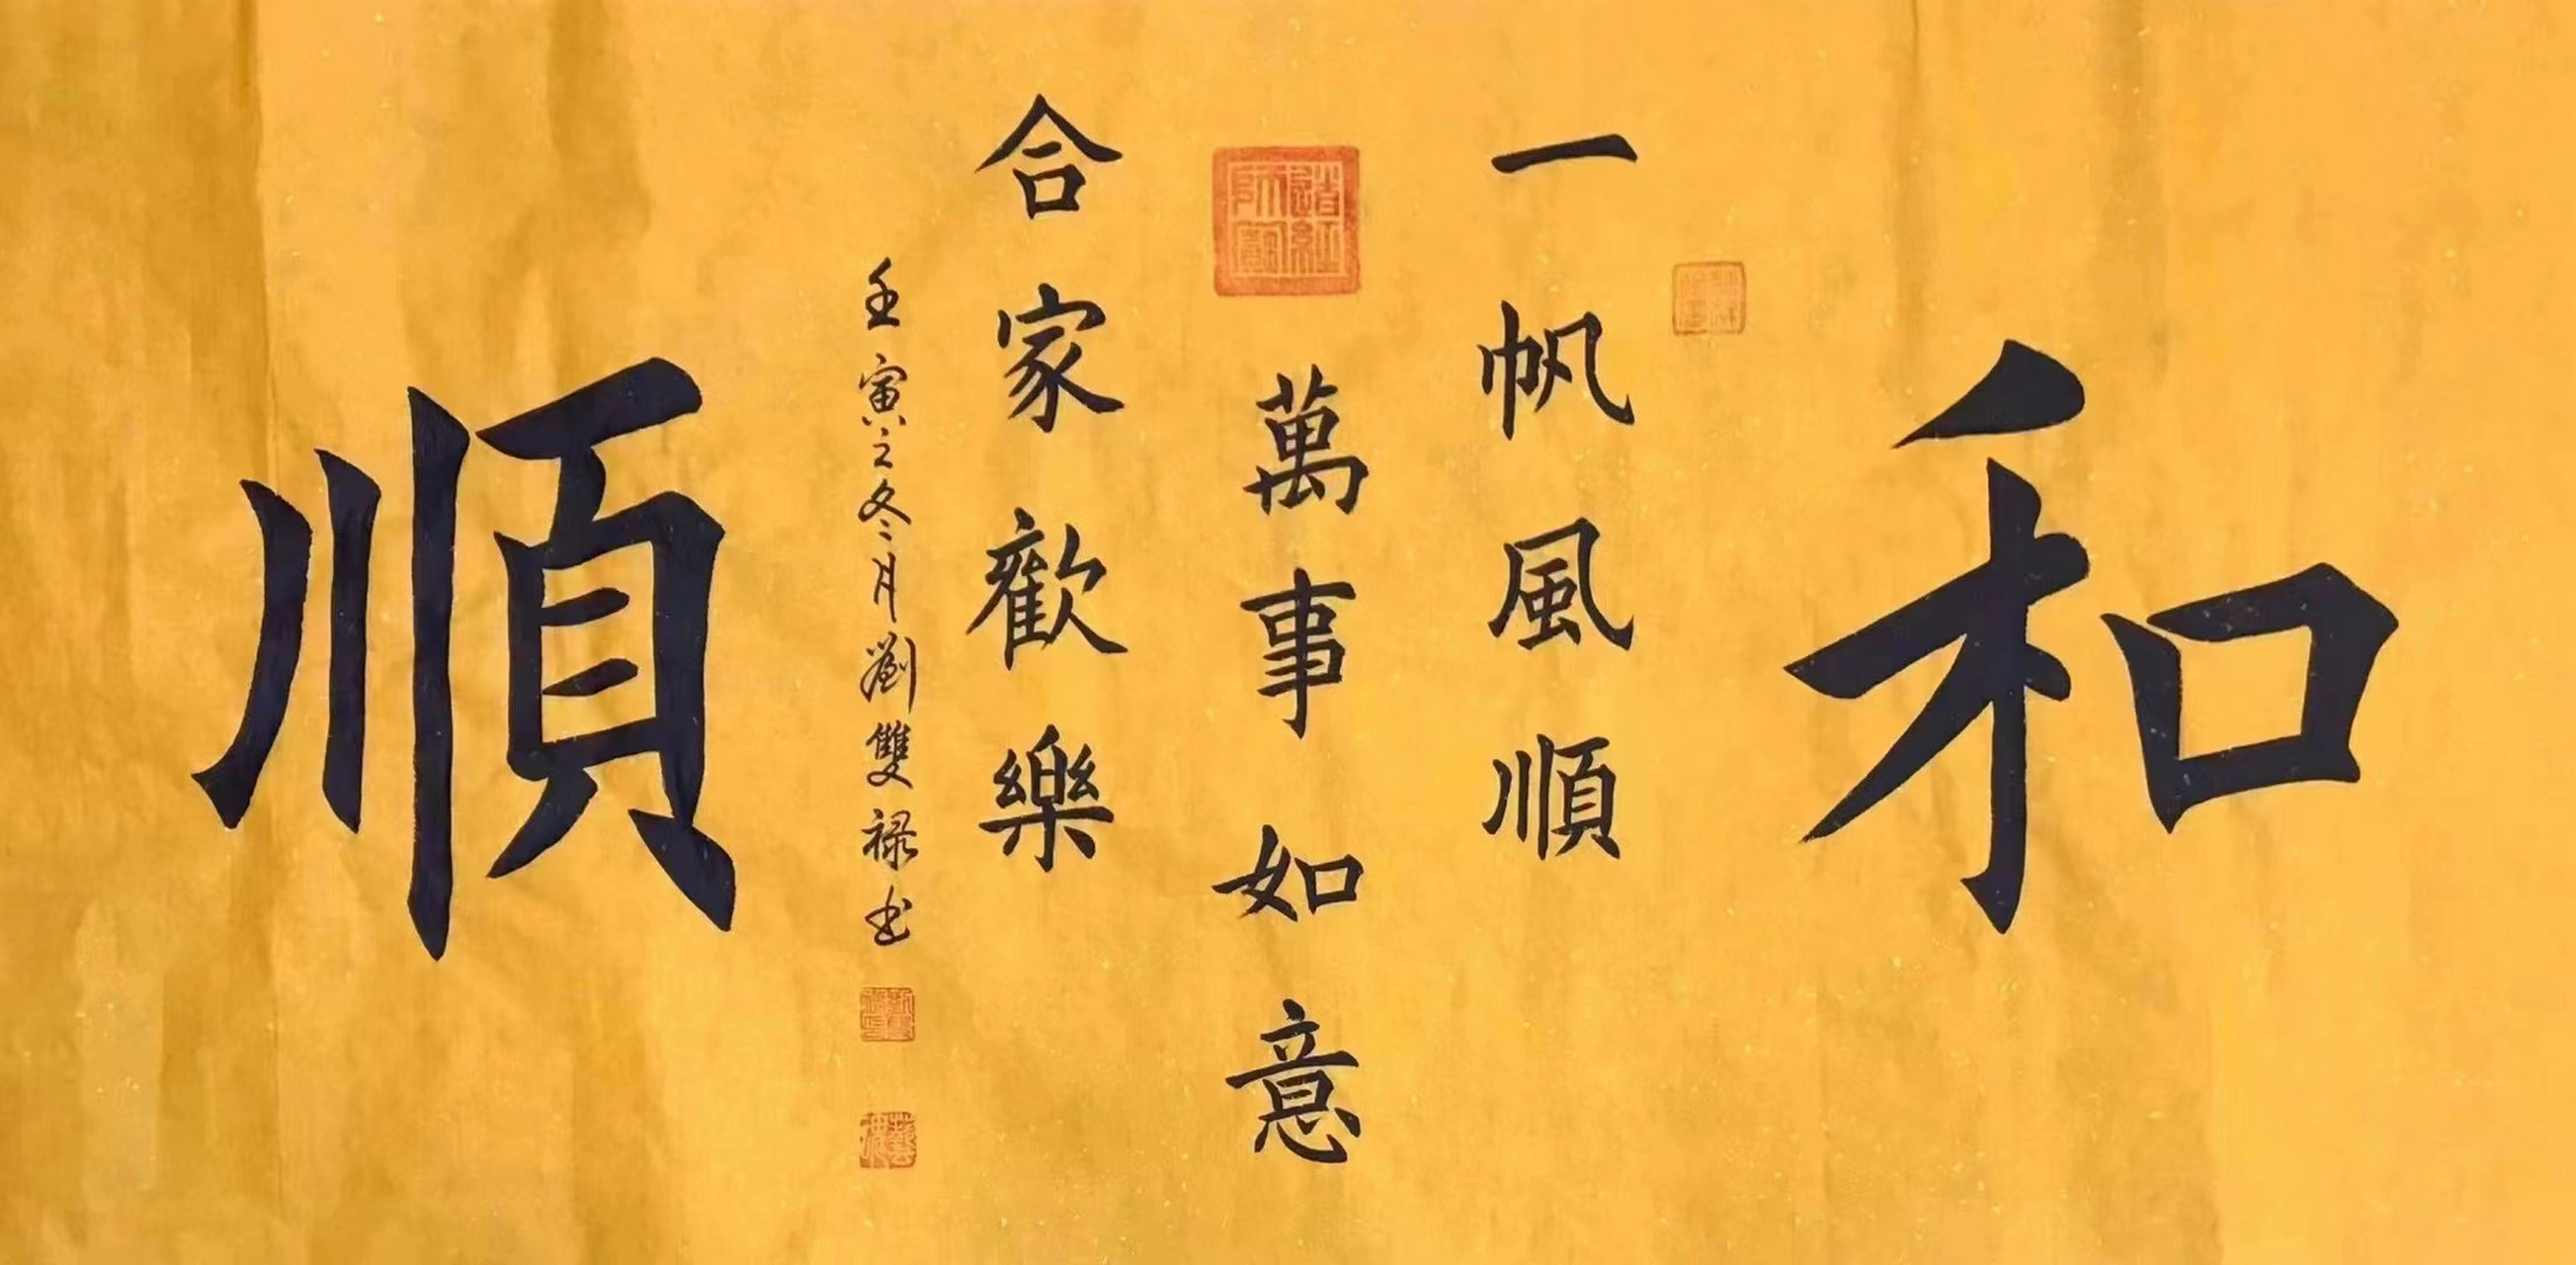 和
一帆風順
萬事如意
合家歡樂
壬寅之冬月劉雙禄书
順